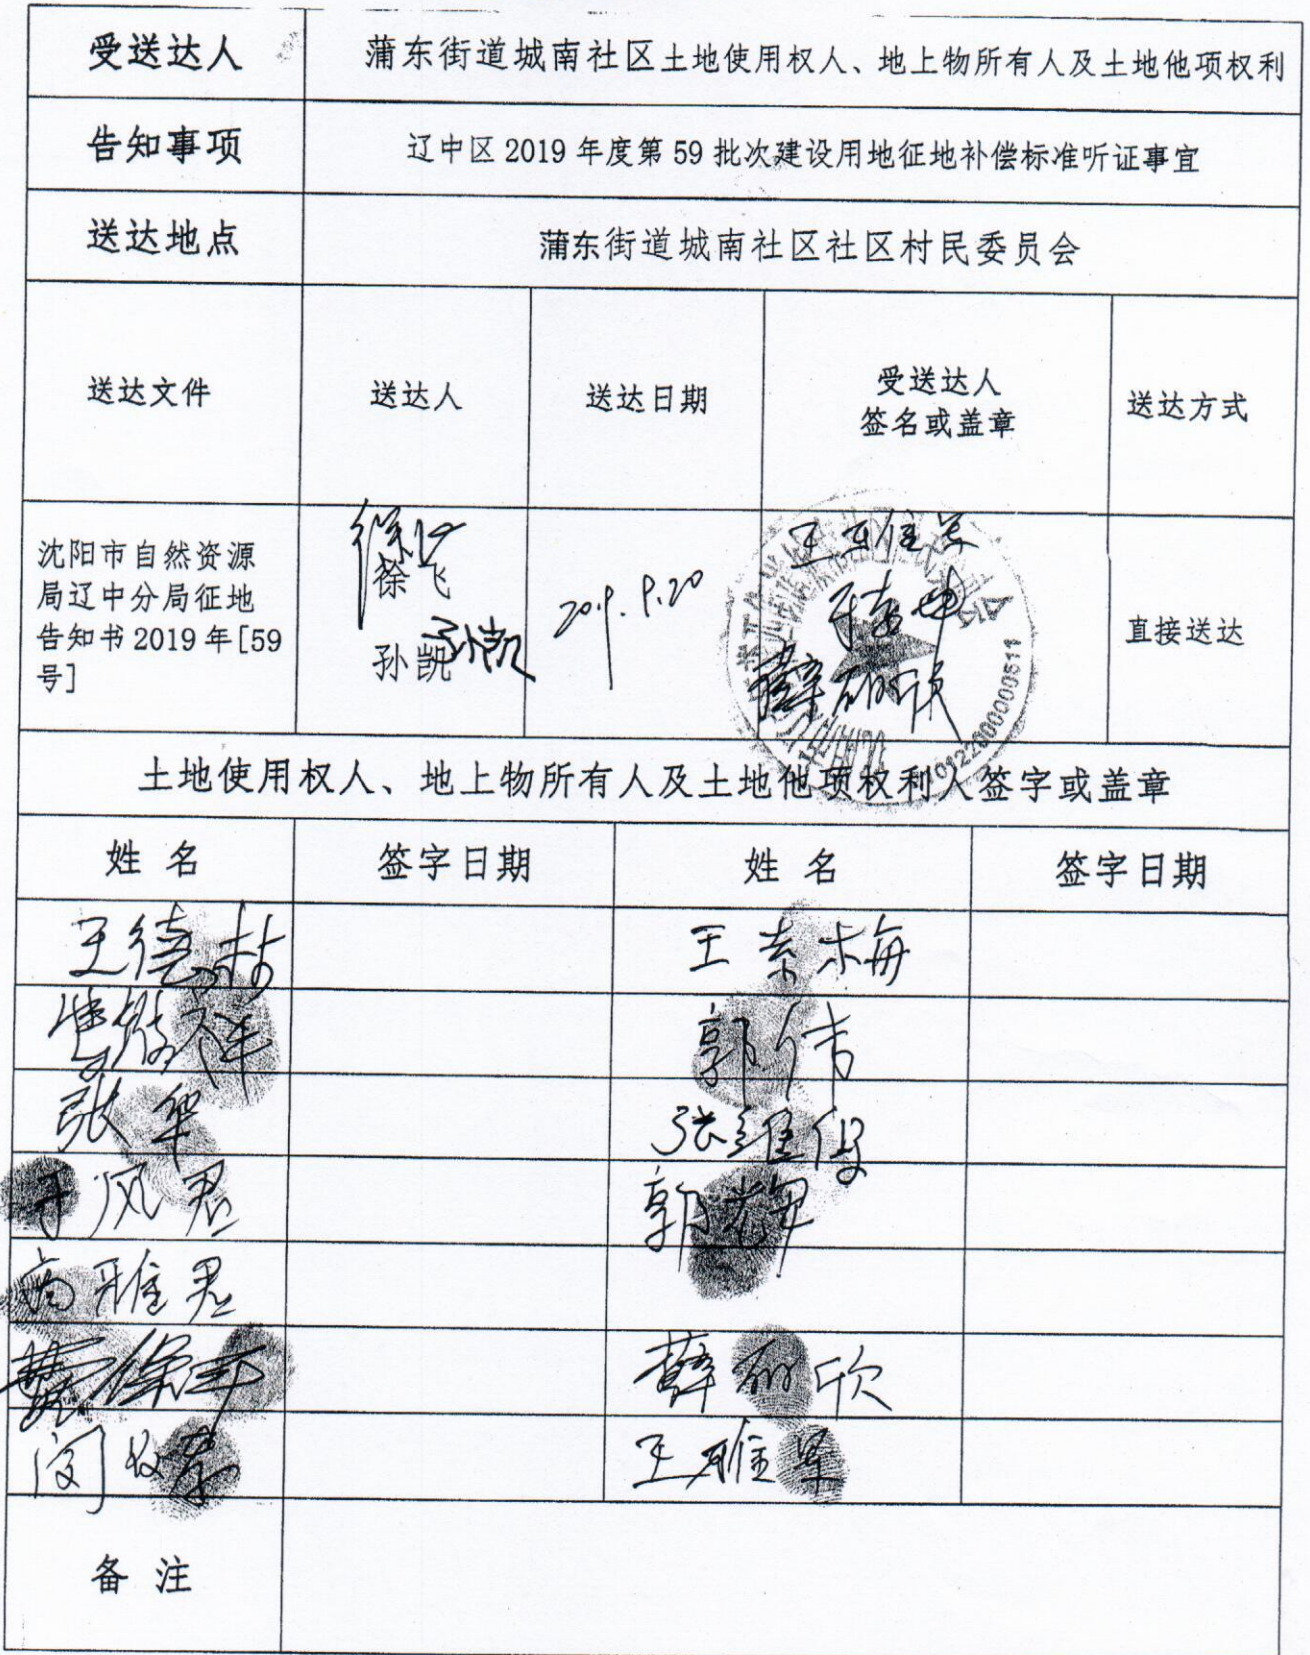 受送达人
蒲东街道城南社区土地使用权人、地上物所有人及土地他项权利
告知事项
辽中区 2019 年度第 59 批次建设用地征地补偿标准听证事宜
送达地点
蒲东街道城南社区社区村民委员会
送达文件
送达人
送达日期
受送达人
签名或盖章
送达方式
沈阳市自然资源
局辽中分局征地
告知书 2019 年[59
号]
徐飞
徐飞
孙凯 孙凯
2019.9.20
薛丽欣
直接送达
土地使用权人、地上物所有人及土地他项权利人签字或盖章
姓 名
签字日期
姓 名
签字日期
王素梅
郭伟
张军
张维俊
于凤君
商雅君
薛丽欣
王雅军
备 注